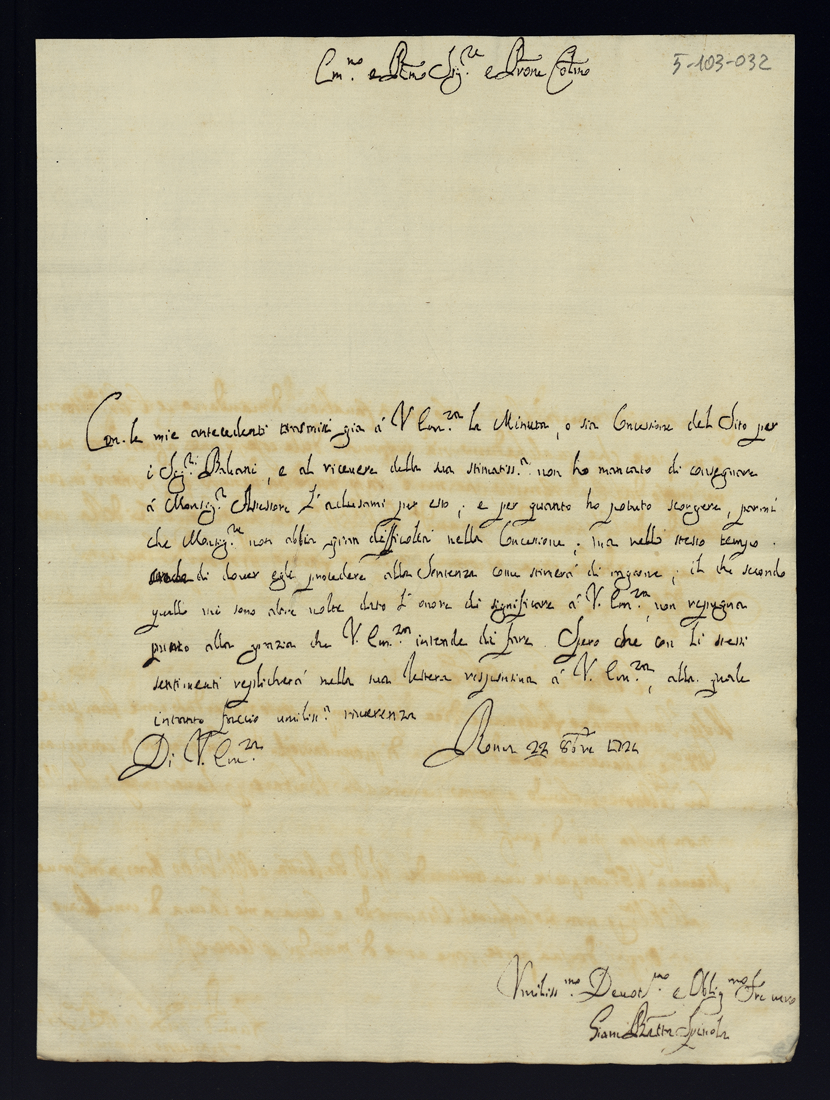 Em.mo e Rmo Sig.re e Prone Colmo
5-103-032
Con le mie antecedenti trasmisi gia á V. Em.za la Minuta, o sia Concessione del Sito per
i Sig.ri Balbani, e al ricevere della sua stimatiss.a non ho mancato di consegnare
á Monsig.r Assessore l'acclusami per esso; e per quanto ho potuto scorgere, parmi
che Monsig.re non abbia gran difficoltá nella Concessione; ma nello stesso tempo
di dover egli procedere alla Sentenza come stimerá di ragione; il che secondo
quello mi sono altre volte dato l'onore di significare á V. Em.za, non repugna
punto alla grazia che V. Em.za intende di fare. Spero che con li stessi
sentimenti replicherá nella sua lettera responsiva á V. Em.za, alla quale
intanto faccio umiliss.a riverenza
Di V. Em.za Roma 22 8bre 1724
Umiliss.mo Devot.mo e Oblig.mo Sre vero
Giam Batta Spinola